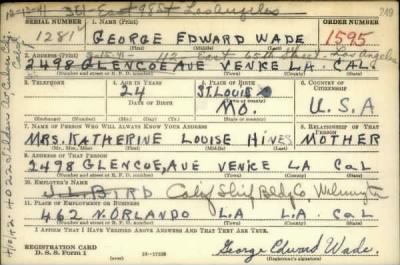 12-12-41 361 East 98st Los Angeles
249
SERIAL NUMBER 1. NAME (Print) ORDER NUMBER
12817 GEORGE EDWARD WADE 1595
2. ADDRESS (Print)
112 East 65th Street - Los Angeles
2498 GLENCOE AVE VENICE L.A. CAL
3. TELEPHONE 4. AGE IN YEARS 5. PLACE OF BIRTH 6. COUNTRY OF CITIZENSHIP
24 ST. LOUIS
DATE OF BIRTH
MO. U.S.A
7. NAME OF PERSON WHO WILL ALWAYS KNOW YOUR ADDRESS 8. RELATIONSHIP OF THAT PERSON
MRS. KATHERINE LOUISE HINES MOTHER
(Mr., Mrs., Miss) (First) (Middle) (Last)
9. ADDRESS OF THAT PERSON
2498 GLENCOE, AVE VENICE LA Cal
(Number and street or R. F. D. number) (Town) (County) (State)
10. EMPLOYER'S NAME
J.L. BIRD Calif Ship Bldg Co Wilmington
11. PLACE OF EMPLOYMENT OR BUSINESS
462 N. ORLANDO LA L.A. Cal
(Number and street or R. F. D. number) (Town) (County) (State)
I AFFIRM THAT I HAVE VERIFIED ABOVE ANSWERS AND THAT THEY ARE TRUE.
REGISTRATION CARD
D. S. S. Form 1
George Edward Wade
(Registrant's signature)